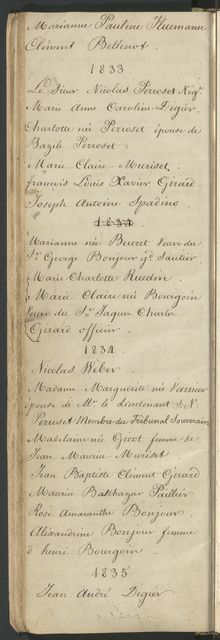 Marianne Pauline Huemann
Clément Bellenot.
1833
Le Sieur Nicolas Perroset Négt.
Marie Anne Caroline Digier
Charlotte née Perroset épouse de
Bazile Perroset
Marie Claire Muriset.
François Louis Xavier Girard.
Joseph Antoine Spadino
1834
Marianne née Beuret veuve du
Sr. George Bonjour
Marie Charlotte Ruedin
Marie Claire née Bourgoin
veuve du Sr. Jaques Charles
Girard officier.
1834
Nicolas Wéber.
Madame Marguerite née Varnier
épouse de Mr. le lieutenant J. N.
Perroset Membre du Tribunal Souverain
Madelaine née Gicot femme de
Jean Maurice Muriset
Jean Baptiste Clément Girard
Maurice Balthazar Paillier
Rose Amaranthe Bonjour.
Alexandrine Bonjour femme
d'henri Bourgoin
1835
Jean André Digier